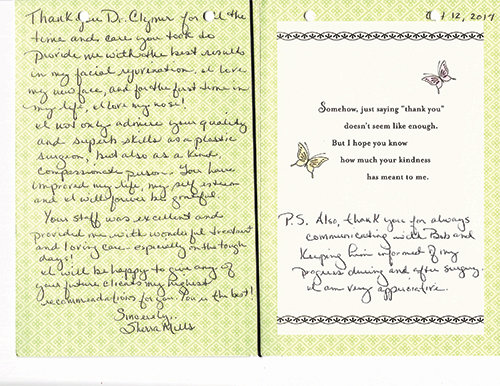 Thank you Dr. Clymer for all the
time and care you took to
provide me with the best results
in my facial rejuvenation. I love
my new face, and for the first time in
my life, I love my nose!
I not only admire your quality
and superb skills as a plastic
surgeon, but also as a kind,
compassionate person. You have
improved my life, my self esteem
and I will forever be grateful.
Your staff was excellent and
provided me with wonderful treatment
and loving care - especially on the tough
days!
I will be happy to give any of
your future clients my highest
recommendations for you. You're the best!
Sincerely,
Sherra Mills
12, 2017
Somehow, just saying "thank you"
doesn't seem like enough.
But I hope you know
how much your kindness
has meant to me.
P.S. Also, thank you for always
communicating with Bob and
Keeping him informed of my
progress during and after surgery.
I am very appreciative.